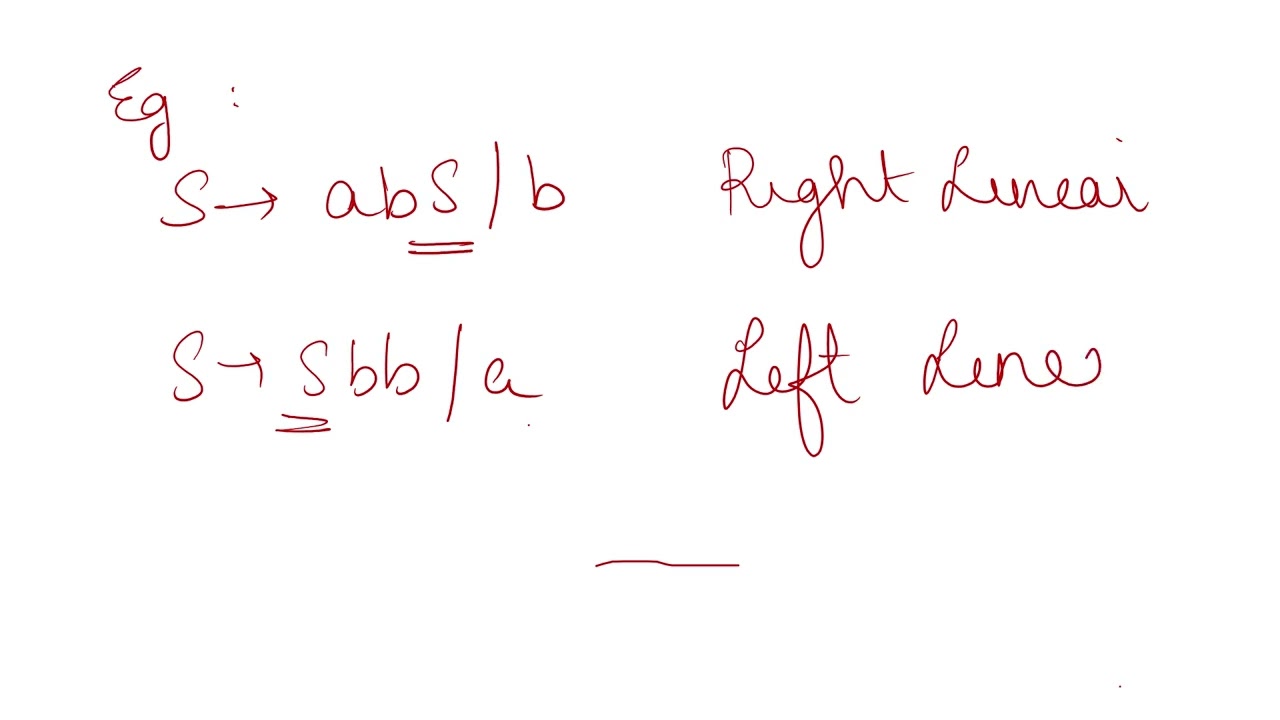 Eg :
S → abS / b Right Linear
S → Sbb / a Left Linea